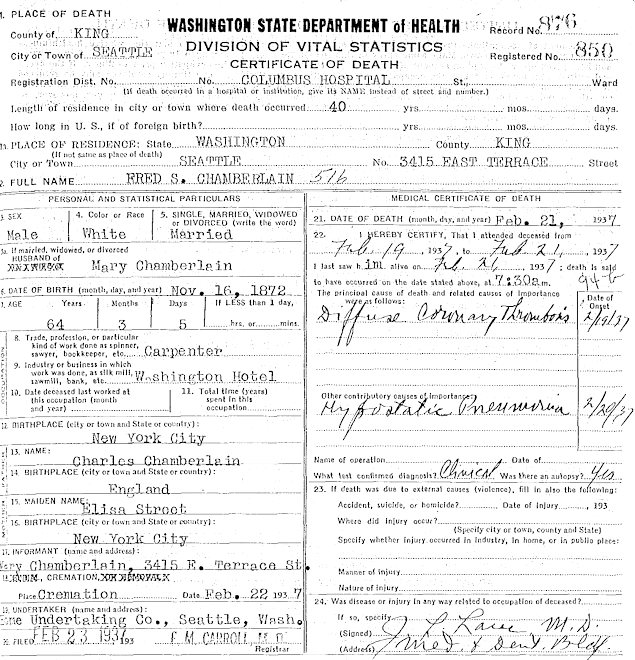 1. PLACE OF DEATH
WASHINGTON STATE DEPARTMENT of HEALTH
County of KING
Record No. 876
City or Town of SEATTLE
DIVISION OF VITAL STATISTICS
Registered No. 850
CERTIFICATE OF DEATH
Registration Dist. No. No. COLUMBUS HOSPITAL St.; Ward
(If death occurred in a hospital or institution, give its NAME instead of street and number.)
Length of residence in city or town where death occurred 40 yrs. mos. days.
How long in U. S., if of foreign birth? yrs. mos. days.
PLACE OF RESIDENCE: State WASHINGTON County KING
(If not same as place of death)
City or Town SEATTLE No. 3415 EAST TERRACE Street
2. FULL NAME FRED S. CHAMBERLAIN 516
PERSONAL AND STATISTICAL PARTICULARS
3. SEX
Male
4. Color or Race
White
5. SINGLE, MARRIED, WIDOWED
or DIVORCED (write the word)
Married
If married, widowed, or divorced
HUSBAND of
Mary Chamberlain
6. DATE OF BIRTH (month, day, and year) Nov. 16, 1872
7. AGE Years Months Days If LESS than 1 day,
64 3 5 hrs. or mins.
8. Trade, profession, or particular
kind of work done as spinner,
sawyer, bookkeeper, etc. Carpenter
9. Industry or business in which
work was done, as silk mill,
sawmill, bank, etc. Washington Hotel
10. Date deceased last worked at
this occupation (month
and year)
11. Total time (years)
spent in this
occupation
12. BIRTHPLACE (city or town and State or country):
New York City
13. NAME:
Charles Chamberlain
14. BIRTHPLACE (city or town and State or country):
England
15. MAIDEN NAME:
Elisa Street
16. BIRTHPLACE (city or town and State or country):
New York City
17. INFORMANT (name and address):
Mary Chamberlain, 3415 E. Terrace St.
CREMATION,
Place Cremation Date Feb. 22 1937
19. UNDERTAKER (name and address):
Undertaking Co., Seattle, Wash.
FILED FEB 23 1937 193
F M CARROLL M D
Registrar
MEDICAL CERTIFICATE OF DEATH
21. DATE OF DEATH (month, day, and year) Feb. 21, 1937
22. I HEREBY CERTIFY, That I attended deceased from
Feb 19, 1937, to Feb 21, 1937
I last saw him alive on Feb. 21, 1937; death is said
to have occurred on the date stated above, at 7:30a m. 94-b
The principal cause of death and related causes of importance
were as follows:
Date of
Onset
Diffuse Coronary Thrombosis 2/19/37
Other contributory causes of importance:
Hypostatic Pneumonia 2/20/37
Name of operation Date of
What test confirmed diagnosis? Clinical Was there an autopsy? Yes
23. If death was due to external causes (violence), fill in also the following:
Accident, suicide, or homicide? Date of Injury , 193
Where did injury occur?
(Specify city or town, county and State)
Specify whether injury occurred in industry, in home, or in public place:
Manner of injury
Nature of injury
24. Was disease or injury in any way related to occupation of deceased?
If so, specify
(Signed) M. D.
(Address) Med. & Dent. Bldg.